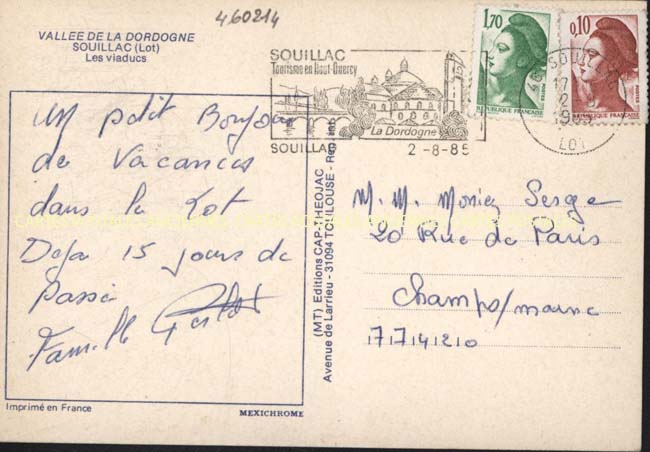 460214
VALLEE DE LA DORDOGNE
SOUILLAC (Lot)
Les viaducs
SOUILLAC
Tourisme en Haut-Quercy
La Dordogne
SOUILLAC
2-8-85
1,70
REPUBLIQUE FRANCAISE
POSTES
0,10
REPUBLIQUE FRANCAISE
POSTES
17
LOT
un petit Bonjour
de Vacances
dans le Lot
Deja 15 jours de
passé
Famille
(MT) Editions CAP-THEOJAC
Avenue de Larrieu - 31094 TOULOUSE - Rep. int.
M. M. Monier Serge
20 Rue de Paris
Champs/marne
77420
Imprimé en France
MEXICHROME